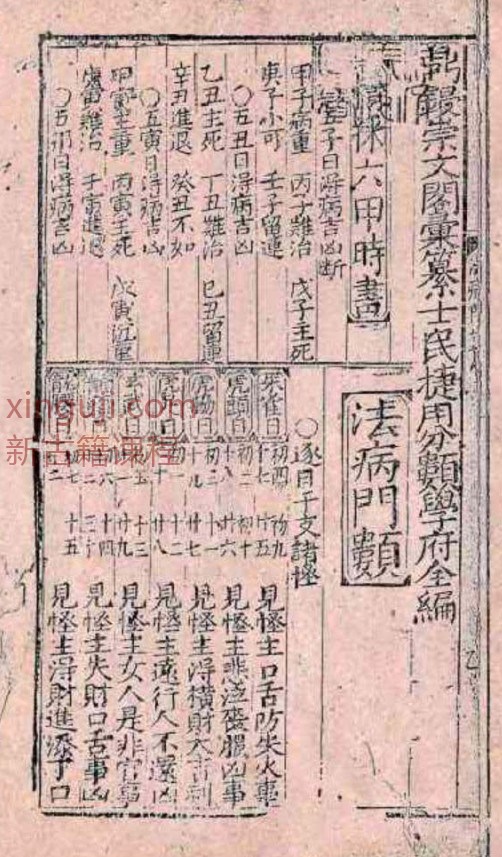 鼎鐫崇文閣彙纂士民捷用分類學府全編
法病門類
六甲時書
子日得病吉凶斷
甲子病重 丙子難治 戊子主死
庚子小可 壬子留連
〇五丑日得病吉凶
乙丑主死 丁丑難治 己丑留連
辛丑進退 癸丑不如
〇五寅日得病吉凶
甲寅主重 丙寅主死 戊寅沉重
庚寅難治 壬寅進退
〇五卯日得病吉凶
〇逐日干支諸怪
朱雀日 初四 初九 十七 廿五 見怪主口舌防失火事
虎頭日 初二 初十 十八 廿六 見怪主悲泣喪服凶事
虎脇日 初三 十一 十九 廿七 見怪主得橫財大吉利
虎足日 十二 廿八 見怪主遠行人不還凶
十三 廿九 見怪主女人是非官事
十四 三十 見怪主失財口舌事凶
初七 十五 見怪主得財進添子口
xinguji.com
新古籍课程